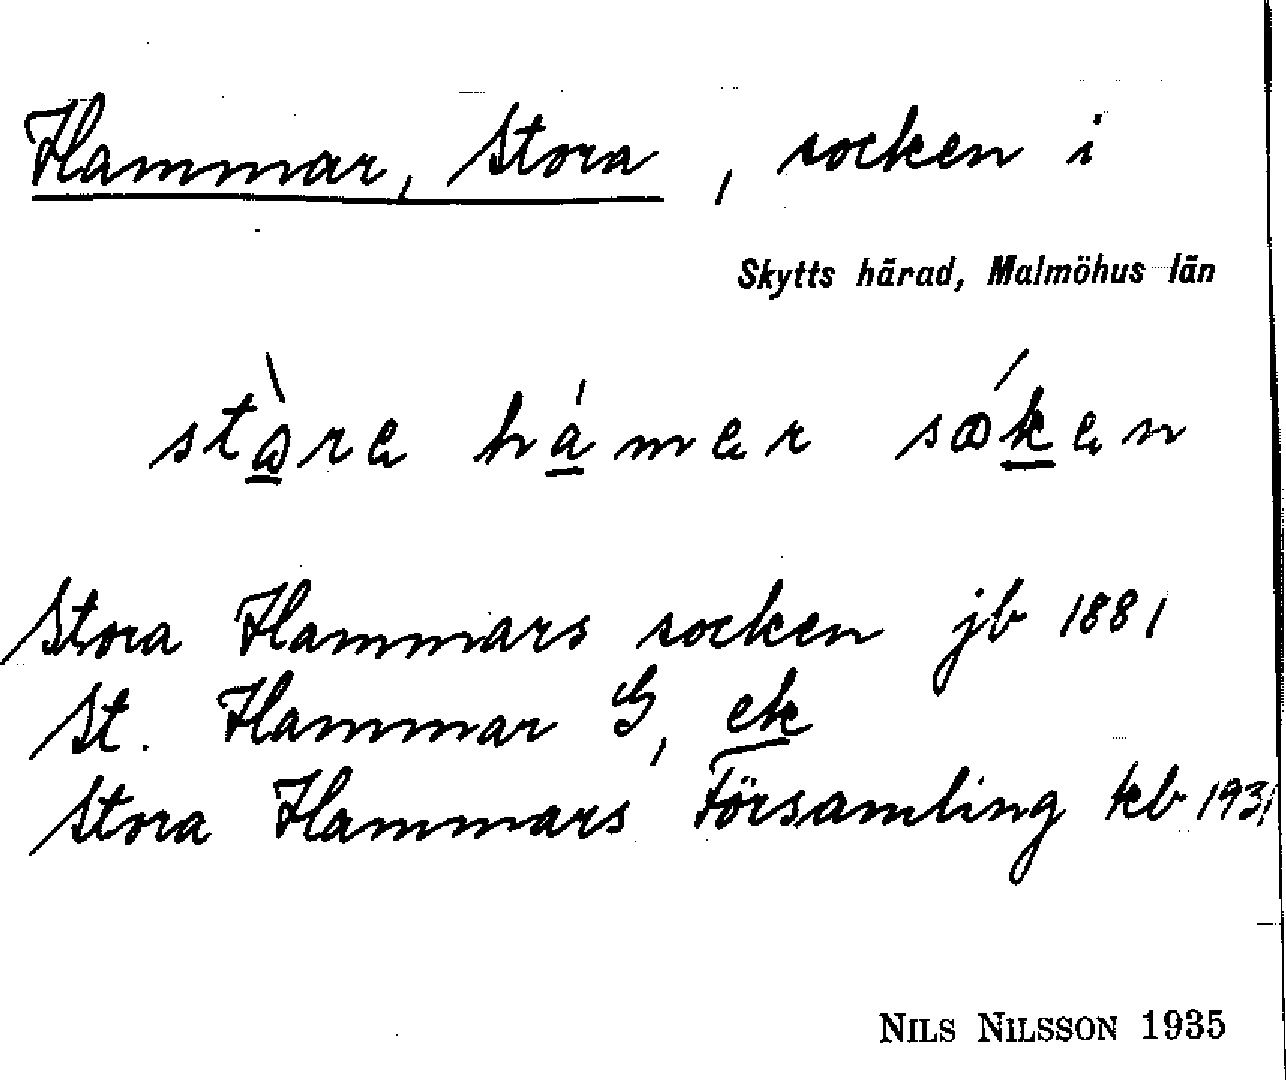 Hammar, Stora, socken i
Skytts härad, Malmöhus län
Stora Hammars socken jb 1881
St. Hammar G, ek
Stora Hammars Församling kb 1931
NILS NILSSON 1935